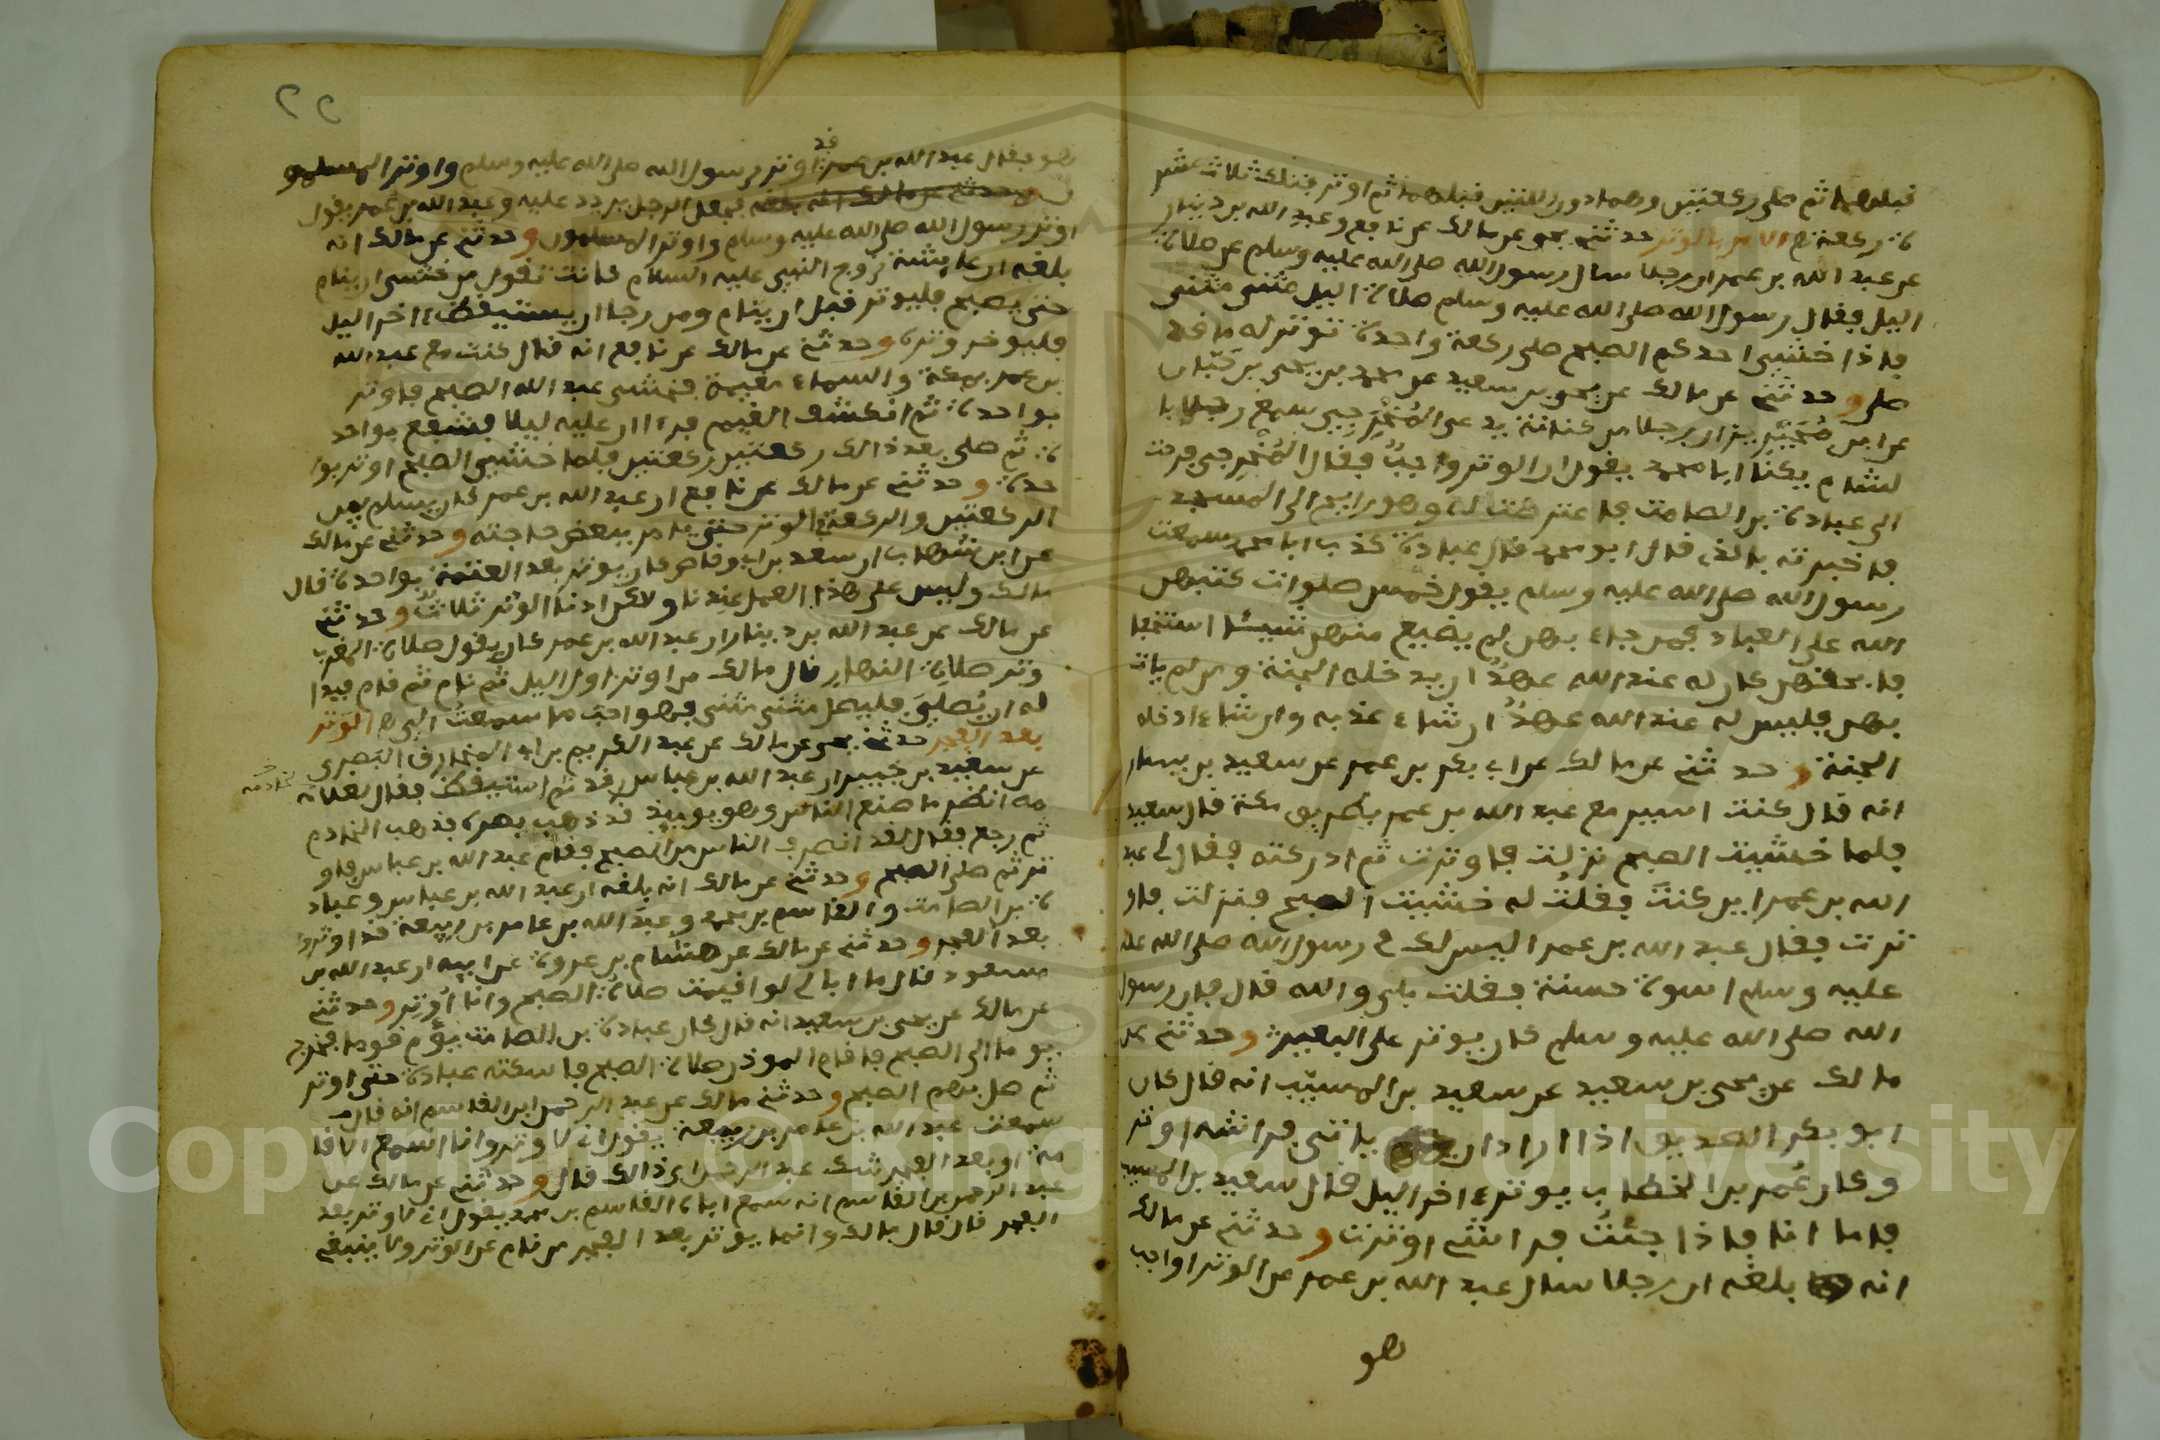 قبلهما ثم صلى ركعتين وهما دون اللتين قبلهما ثم اوتر فتلك ثلاث عشر
ة ركعة الامر بالوتر حدثني يحيى عن مالك عن نافع وعبد الله بن دينار
عن عبد الله بن عمر ان رجلا سال رسول الله صلى الله عليه وسلم عن صلاة
اليل فقال رسول الله صلى الله عليه وسلم صلاة اليل مثنى مثنى
فاذا خشي احدكم الصبح صلى ركعة واحدة توتر له ما قد
صلى وحدثني عن مالك عن يحيى بن سعيد عن محمد بن يحيى بن حبان
عن ابن محيريز ان رجلا من كنانة يدعى المخدجي سمع رجلا با
لشام يكنا ابا محمد يقول ان الوتر واجب فقال المخدجي فرحت
الى عبادة بن الصامت فاعترضت له وهو رايح الى المسجد
فاخبرته بالذي قال ابو محمد فقال عبادة كذب ابا محمد سمعت
رسول الله صلى الله عليه وسلم يقول خمس صلوات كتبهن
الله على العباد فمن جاء بهن لم يضيع منهن شيئا استخفا
فا بحقهن كان له عند الله عهدا ان يدخله الجنة ومن لم يات
بهن فليس له عند الله عهد ان شاء عذبه وان شاء ادخله
الجنة وحدثني عن مالك عن ابي بكر بن عمر عن سعيد بن يسار
انه قال كنت اسير مع عبد الله بن عمر بطريق مكة قال سعيد
فلما خشيت الصبح نزلت فاوترت ثم ادركته فقال لي عبد
الله بن عمر اين كنت فقلت له خشيت الصبح فنزلت فاو
ترت فقال عبد الله بن عمر اليس لك في رسول الله صلى الله عليه
عليه وسلم اسوة حسنة فقلت بلى والله قال فان رسول
الله صلى الله عليه وسلم كان يوتر على البعير وحدثني عن
مالك عن يحيى بن سعيد عن سعيد بن المسيب انه قال كان
ابو بكر الصديق اذا اراد ان ياتي فراشه اوتر
وكان عمر بن الخطاب يوتر اخر اليل قال سعيد بن المسيب
فاما انا فاذا جئت فراشي اوترت وحدثني عن مالك
انه بلغه ان رجلا سال عبد الله بن عمر عن الوتر اواجب
هو
٢٢
قد
هو فقال عبد الله بن عمر اوتر رسول الله صلى الله عليه وسلم واوتر المسلمو
ن وحدثني عن مالك انه بلغه فجعل الرجل يردد عليه وعبد الله بن عمر يقول
اوتر رسول الله صلى الله عليه وسلم واوتر المسلمون وحدثني عن مالك انه
بلغه ان عايشة زوج النبي عليه السلام كانت تقول من خشي ان ينام
حتى يصبح فليوتر قبل ان ينام ومن رجا ان يستيقظ اخر اليل
فليوخر وتره وحدثني عن مالك عن نافع انه قال كنت مع عبد الله
بن عمر بمكة والسماء مغيمة فخشي عبد الله الصبح فاوتر
بواحدة ثم انكشف الغيم فرءا ان عليه ليلا فشفع بواحد
ة ثم صلى بعد ذالك ركعتين ركعتين فلما خشي الصبح اوتر بوا
حدة وحدثني عن مالك عن نافع ان عبد الله بن عمر كان يسلم بين
الركعتين والركعة الوتر حتى يامر ببعض حاجته وحدثني عن مالك
عن ابن شهاب ان سعد بن ابي وقاص كان يوتر بعد العتمة بواحدة قال
مالك وليس على هذا العمل عندنا ولاكن ادنا الوتر ثلاث وحدثني
عن مالك عن عبد الله بن دينار ان عبد الله بن عمر كان يقول صلاة المغرب
وتر صلاة النهار قال مالك من اوتر اول اليل ثم نام ثم قام فبدا
له ان يصلي فليصل مثنى مثنى فهو احب ما سمعت الي الوتر
بعد الفجر حدثني يحيى عن مالك عن عبد الكريم بن ابي المخارق البصري
عن سعيد بن جبير ان عبد الله بن عباس رقد ثم استيقظ فقال لغلامه
لخادمه
مه انظر ما صنع الناس وهو يوميذ قد ذهب بصره فذهب الخادم
ثم رجع فقال لقد انصرف الناس من الصبح فقام عبد الله بن عباس فاو
تر ثم صلى الصبح وحدثني عن مالك انه بلغه ان عبد الله بن عباس وعباد
ة بن الصامت والقاسم بن محمد وعبد الله بن عامر بن ربيعة قد اوتروا
بعد الفجر وحدثني عن مالك عن هشام بن عروة عن ابيه ان عبد الله بن
مسعود قال ما ابالي لو اقيمت صلاة الصبح وانا اوتر وحدثني
عن مالك عن يحيى بن سعيد انه قال كان عبادة بن الصامت يؤم قوما فخرج
يوما الى الصبح فاقام الموذن صلاة الصبح فاسكته عبادة حتى اوتر
ثم صلى بهم الصبح وحدثني مالك عن عبد الرحمن ابن القاسم انه قال
سمعت عبد الله بن عامر بن ربيعة يقول اني لاوتر وانا اسمع الاقا
مة او بعد الفجر شك عبد الرحمن اي ذالك قال وحدثني عن مالك عن
عبد الرحمن بن القاسم انه سمع اباه القاسم بن محمد يقول اني لاوتر بعد
الفجر قال قال مالك وانما يوتر بعد الفجر من نام عن الوتر ولا ينبغي
Copyright © King Saud University